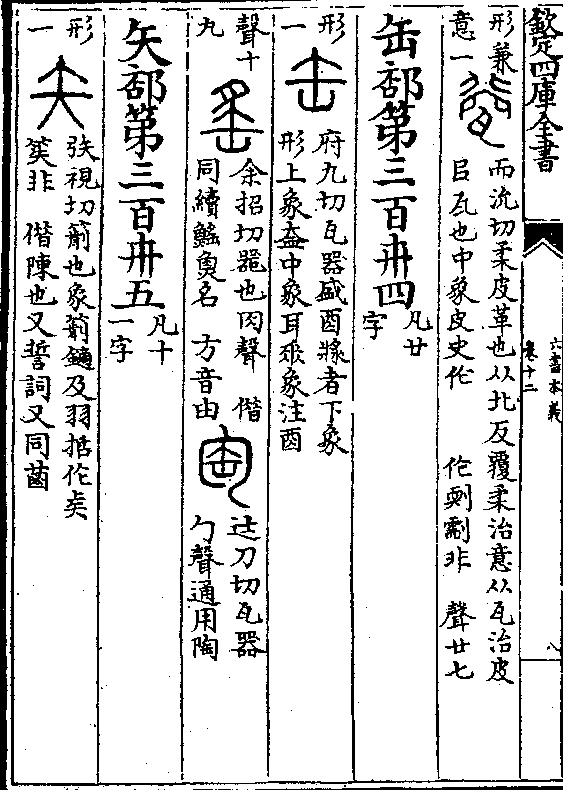 欽定四庫全書
六書本義
卷十二
八
形兼
意一
而流切柔皮革也从北反覆柔治意从瓦治皮
㠯瓦也中象皮史作 作㓹㓺非 聲廿七
缶部第三百卅四
凡廿
字
形
一
府九切瓦器盛酉漿者下象
形上象盍中象耳𠂢象注酉
聲十
九
余招切器也肉聲 偕
同續鰩魚名 方音由
迏刀切瓦器
勹聲通用陶
矢部第三百卅五
凡十
一字
形
一
矤視切箭也象箭鏑及羽括作𠂕
笶非 偕陳也又誓詞又同菡